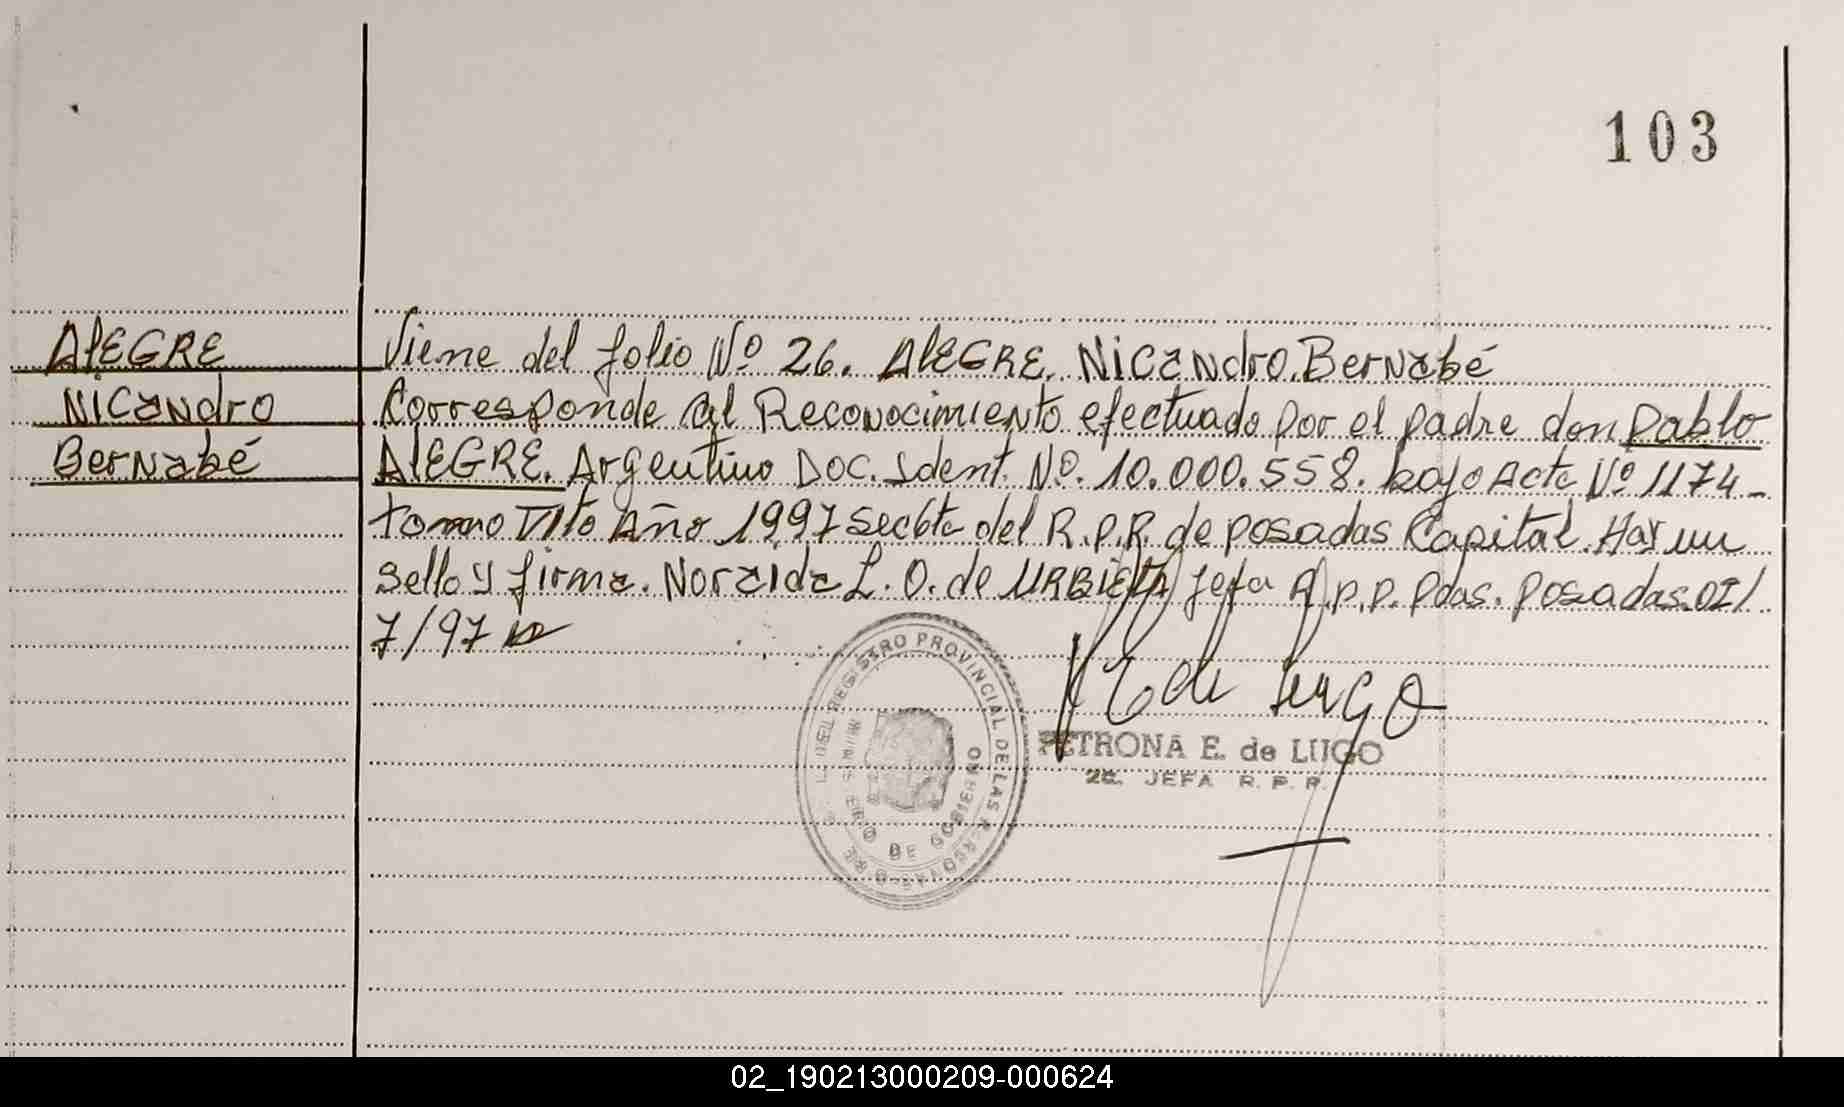 103
AlEGRE
NiCaNdro
BerNabé
Viene del folio Nº 26. AlEGRE. NiCaNdro.BerNabé
Corresponde al Reconocimiento efectuado por el padre don Pablo
AlEGRE. Argentino Doc. Ident. Nº. 10.000.558. bajo Acta Nº 1174-
tomo Año 1997 del R.P.R. de posadas Capital. Hay un
sello y firma. Noraida L. O. de URBIETA Jefa R.P.P. Pdas. posadas.01/
7/97
REGISTRO PROVINCIAL DE LAS PERSONAS
MINISTERIO DE GOBIERNO
de Lugo
PETRONA E. de LUGO
2a. JEFA R. P. P.
02_190213000209-000624